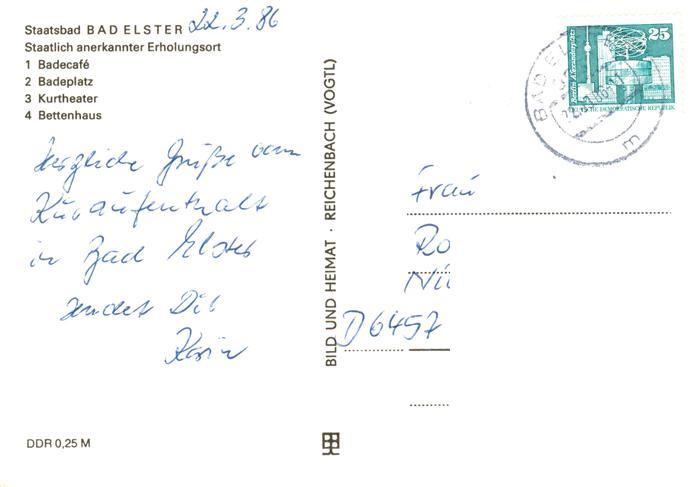 Staatsbad BAD ELSTER 22.3.86
Staatlich anerkannter Erholungsort
1 Badecafé
2 Badeplatz
3 Kurtheater
4 Bettenhaus
Herzliche Grüße vom
Kuraufenthalt
in Bad Elster
sendet Dir
Karin
DDR 0,25 M
BILD UND HEIMAT · REICHENBACH (VOGTL)
25
Berlin, Alexanderplatz
DEUTSCHE DEMOKRATISCHE REPUBLIK
BAD EL
m
Frau
Ro
Nü
D6457